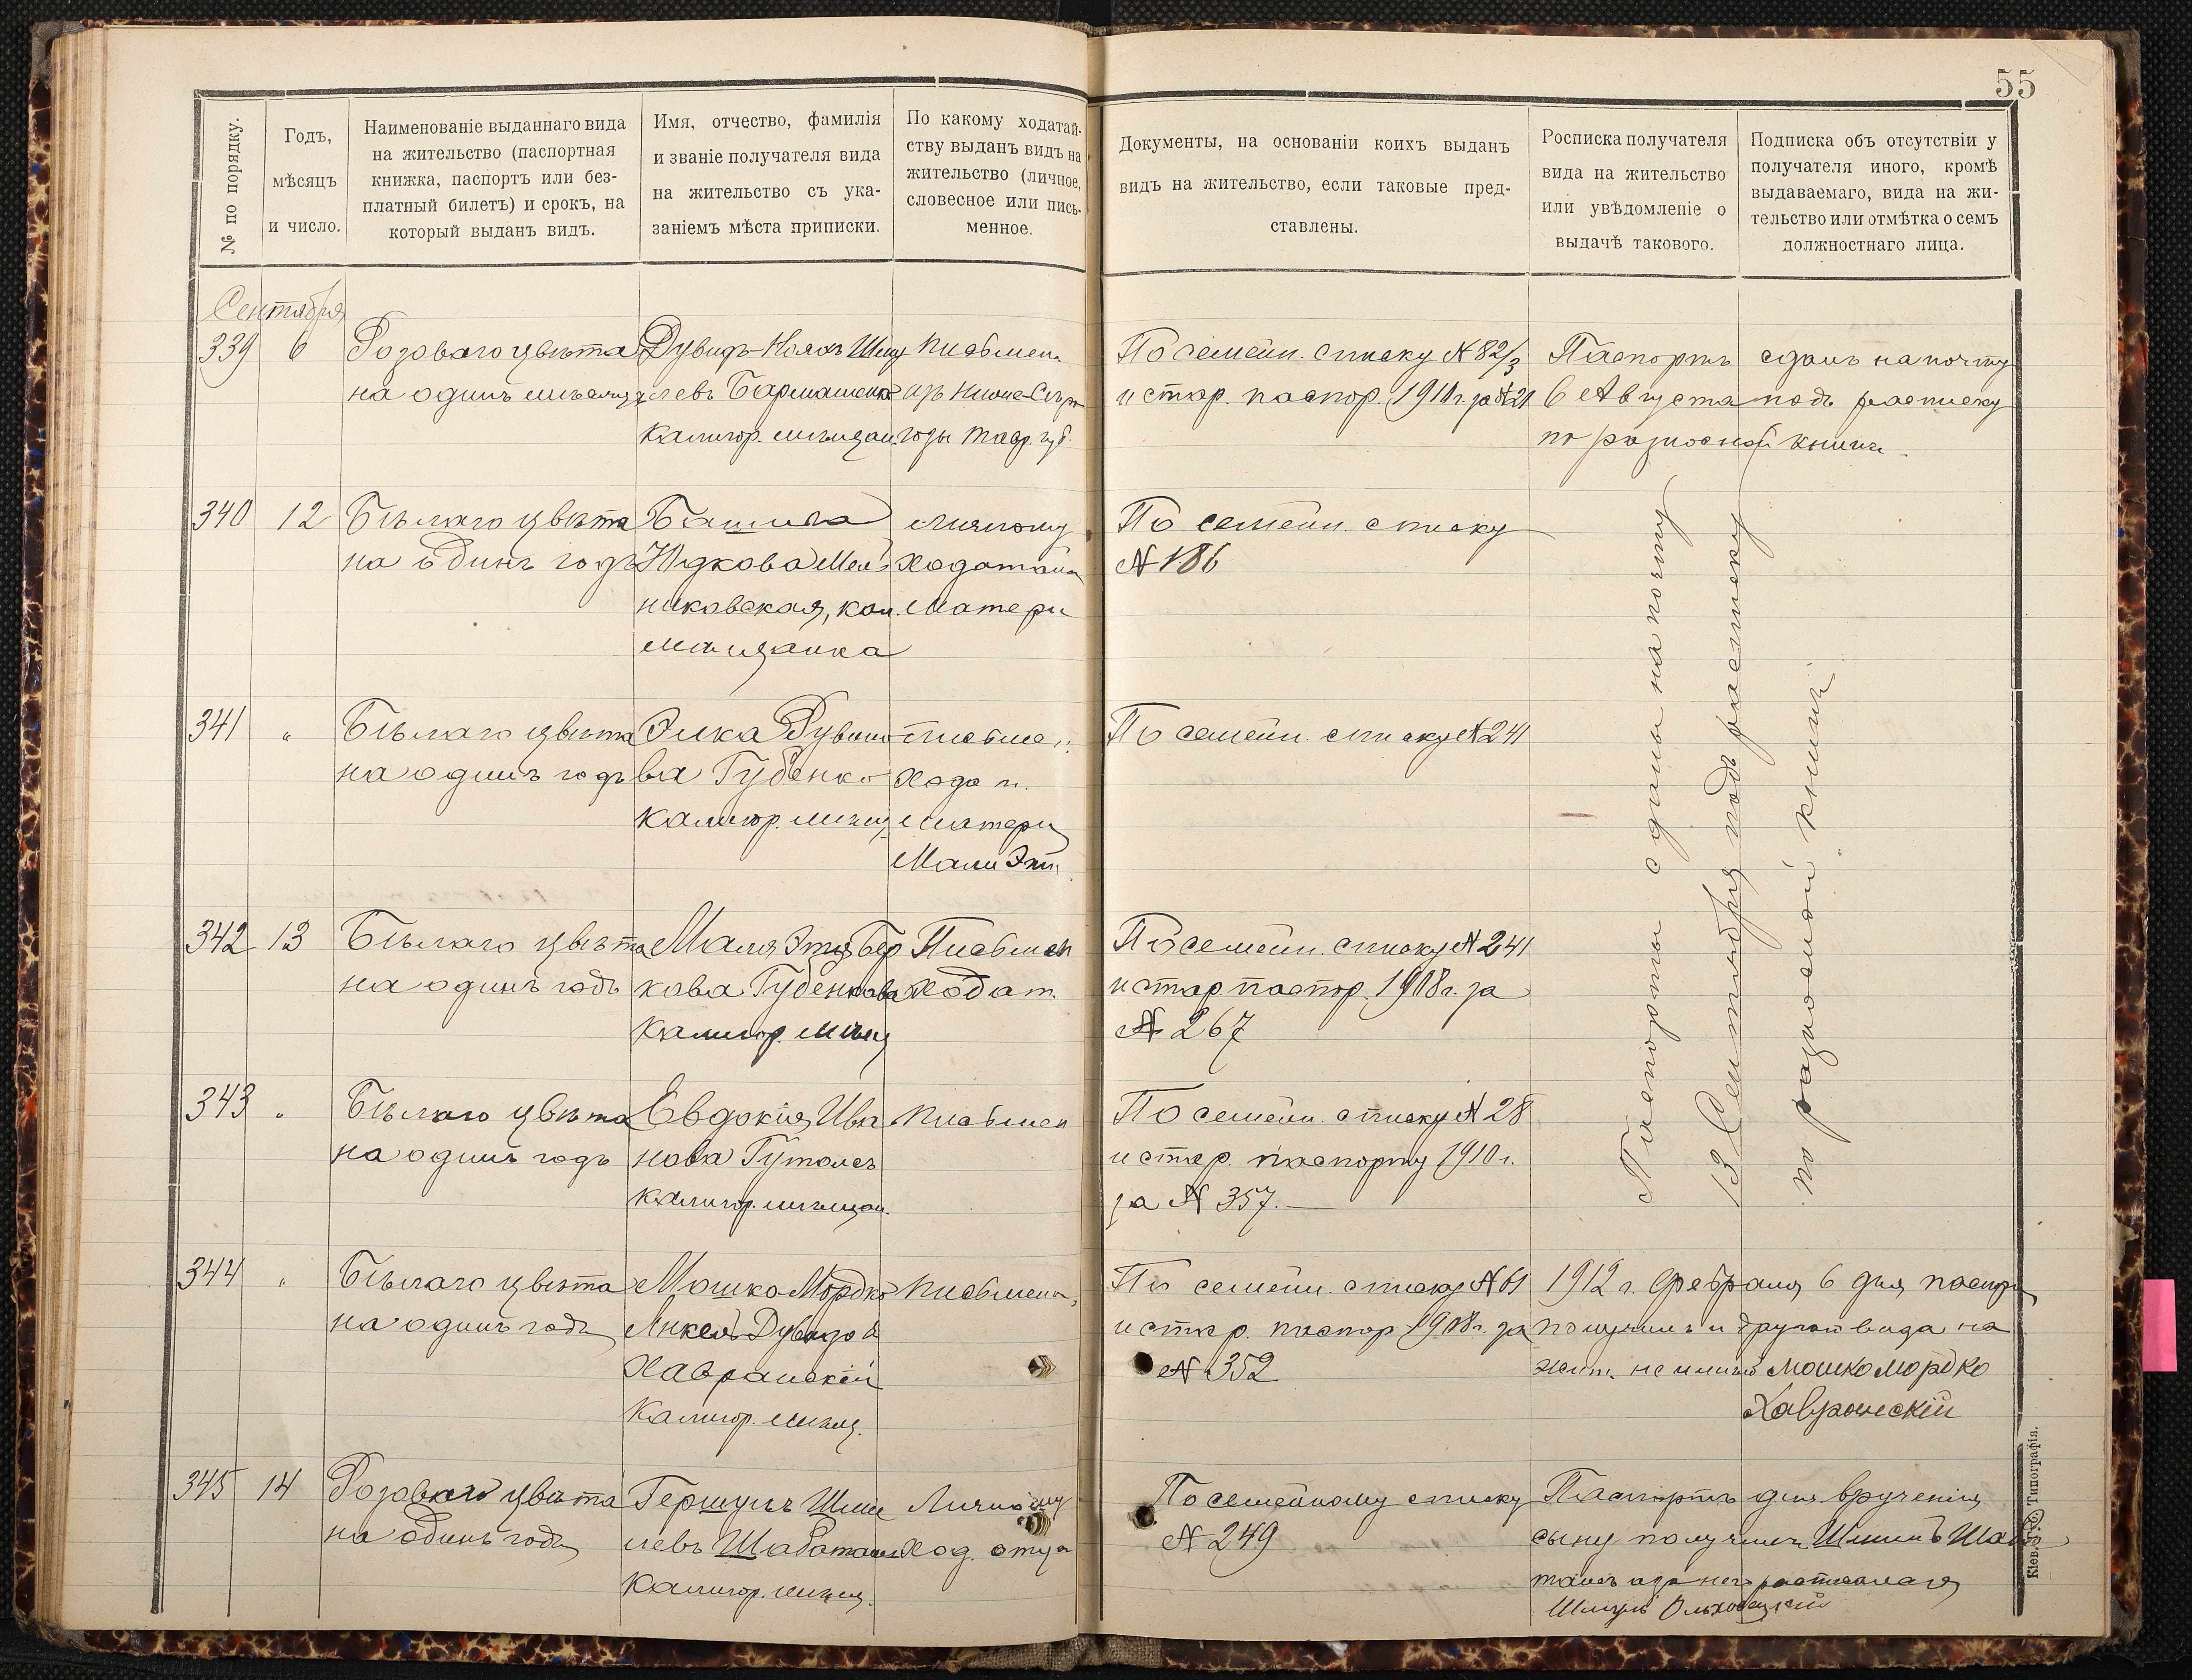 55
№ по порядку.
Годъ,
мѣсяцъ
и число.
Наименованіе выданнаго вида
на жительство (паспортная
книжка, паспортъ или без-
платный билетъ) и срокъ, на
который выданъ видъ.
Имя, отчество, фамилія
и званіе получателя вида
на жительство съ ука-
заніемъ мѣста приписки.
По какому ходатай-
ству выданъ видъ на
жительство (личное,
словесное или пись-
менное.
Документы, на основаніи коихъ выданъ
видъ на жительство, если таковые пред-
ставлены.
Росписка получателя
вида на жительство
или увѣдомленіе о
выдачѣ такового.
Подписка объ отсутствіи у
получателя иного, кромѣ
выдаваемаго, вида на жи-
тельство или отмѣтка о семъ
должностнаго лица.
Сентября
339 6 Розоваго цвѣта
на одинъ мѣсяцъ
Дувидъ-Ноахъ
левъ
Калигор. мѣщан.
Письмен.
изъ Нижне-Сѣро
гозы Тавр. губ.
По семейн. списку № 82/3
и стар. паспор. 1910 г. за № 21
Паспортъ сданъ на почту
6 Августа подъ расписку
по разносной книгѣ
340 12 Бѣлаго цвѣта
на одинъ годъ
Башива
Юдкова Мель
никовская, кал.
мѣщанка
Личному
ходатайс
матери
По семейн. списку
№ 186
341 " Бѣлаго цвѣта
на одинъ годъ
Элка Рувино
ва Губенко
Калигор. мѣщ.
письмен.
Ходат.
матери
Мали Эти
По семейн. списку № 241
342 13 Бѣлаго цвѣта
на одинъ годъ
Маля Этя Бер
кова Губенкова
Калигор. мѣщ
Письмен
ходат.
По семейн. списку № 241
и стар. паспор. 1908 г. за
№ 267
343 " Бѣлаго цвѣта
на одинъ годъ
Евдокія Ива
нова
Калигор. мѣщан.
письмен
По семейн. списку № 28
и стар. паспорту 1910 г.
за № 357.
Паспорты сданы на почту
13 Сентября подъ расписку
по разносной книгѣ
344 " Бѣлаго цвѣта
на одинъ годъ
Мошко-Мордко
Янкель Дувидов
Хавранскій
Калигор. мѣщ.
письмен.
По семейн. списку № 61
и стар. паспор. 1908 г. за
№ 352
1912 г. Февраля 6 дня паспор
получилъ и другого вида на
жит. не имѣю Мошко Мордко
Хавранскій
345 14 Розоваго цвѣта
на одинъ годъ
Гершунъ Шми
левъ
Калигор. мѣщ.
Личному
ход. отца
По семейному списку
№ 249
Паспортъ для врученія
сыну получилъ
а за него расписался
Шмуль Ольховецкій
Кіев. Типографія.